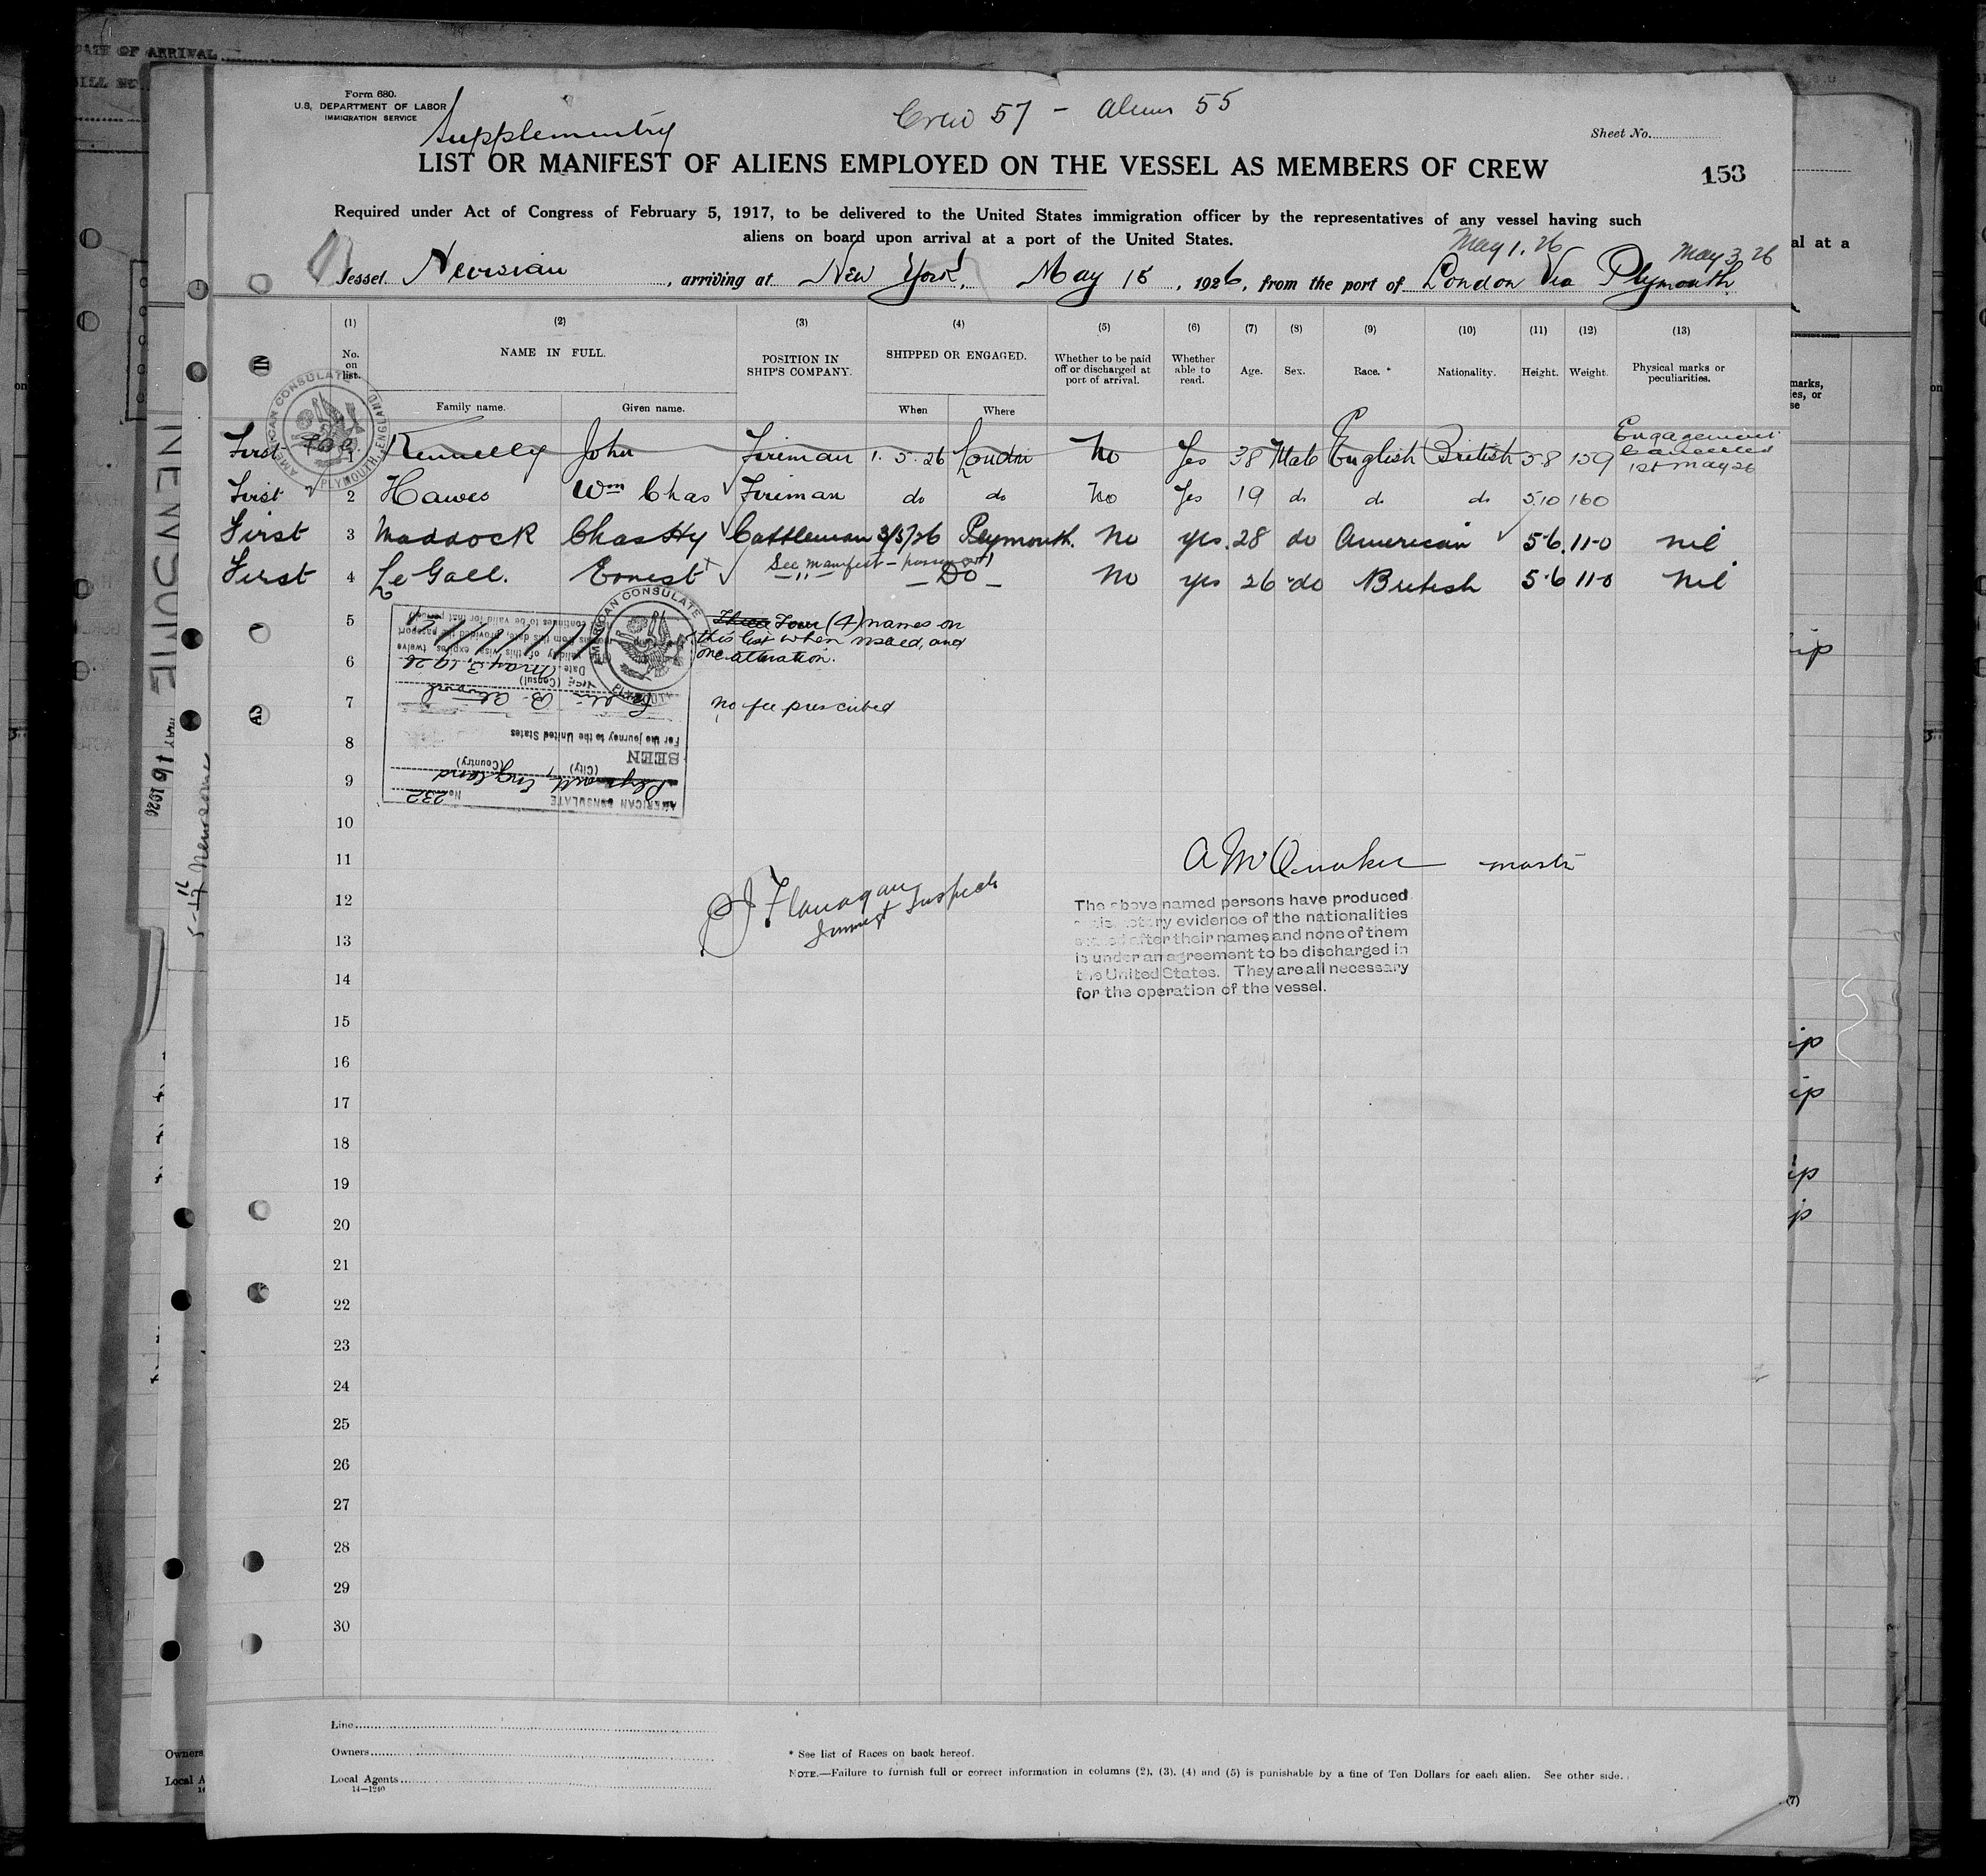 DATE OF ARRIVAL
Form 680.
U.S. DEPARTMENT OF LABOR
IMMIGRATION SERVICE
Supplementry
Crew 57 - aliens 55
Sheet No.
LIST OR MANIFEST OF ALIENS EMPLOYED ON THE VESSEL AS MEMBERS OF CREW
153
Required under Act of Congress of February 5, 1917, to be delivered to the United States immigration officer by the representatives of any vessel having such
aliens on board upon arrival at a port of the United States.
May 1. 26
May 3 26
Vessel Nevisian, arriving at New York, May 15, 1926, from the port of London Via Plymouth
(1) (2) (3) (4) (5) (6) (7) (8) (9) (10) (11) (12) (13)
No. on list.
NAME IN FULL.
Family name. Given name.
POSITION IN SHIP'S COMPANY.
SHIPPED OR ENGAGED.
When Where
Whether to be paid off or discharged at port of arrival.
Whether able to read.
Age. Sex. Race. * Nationality. Height. Weight.
Physical marks or peculiarities.
First 1 Kennelly John Fireman 1. 5. 26 London No Yes 38 Male English British 5 8 159 Engagement Cancelled 1st May 26
First 2 Hawes Wm Chas Fireman do do No Yes 19 do do do 5.10 160
First 3 Maddock Chas Hy Cattleman 3/5/26 Plymouth. No yes. 28 do American 5-6. 11-0 nil
See manifest -
First 4 Le Gall. Ernest — " — — Do — No yes 26 do British 5-6 11-0 Nil
5
6
7
8
9
10
11
12
13
14
15
16
17
18
19
20
21
22
23
24
25
26
27
28
29
30
AMERICAN CONSULATE PLYMOUTH, ENGLAND
AMERICAN CONSULATE PLYMOUTH
Three Four (4) names on
this list when visaed, and
one alteration.
no fee prescribed
AMERICAN CONSULATE No. 232
Plymouth, England
(City) (Country)
SEEN
For the journey to the United States
(Consul)
Date: May 3, 1926
validity of this visa expires twelve
months from this date, provided the passport
continues to be valid for that period
A McQuaker master
J Flanagan
Immigt Inspector
The above named persons have produced
satisfactory evidence of the nationalities
stated after their names and none of them
is under an agreement to be discharged in
the United States. They are all necessary
for the operation of the vessel.
Line
Owners
Local Agents
14—1240
* See list of Races on back hereof.
NOTE.—Failure to furnish full or correct information in columns (2), (3), (4) and (5) is punishable by a fine of Ten Dollars for each alien. See other side.
(7)